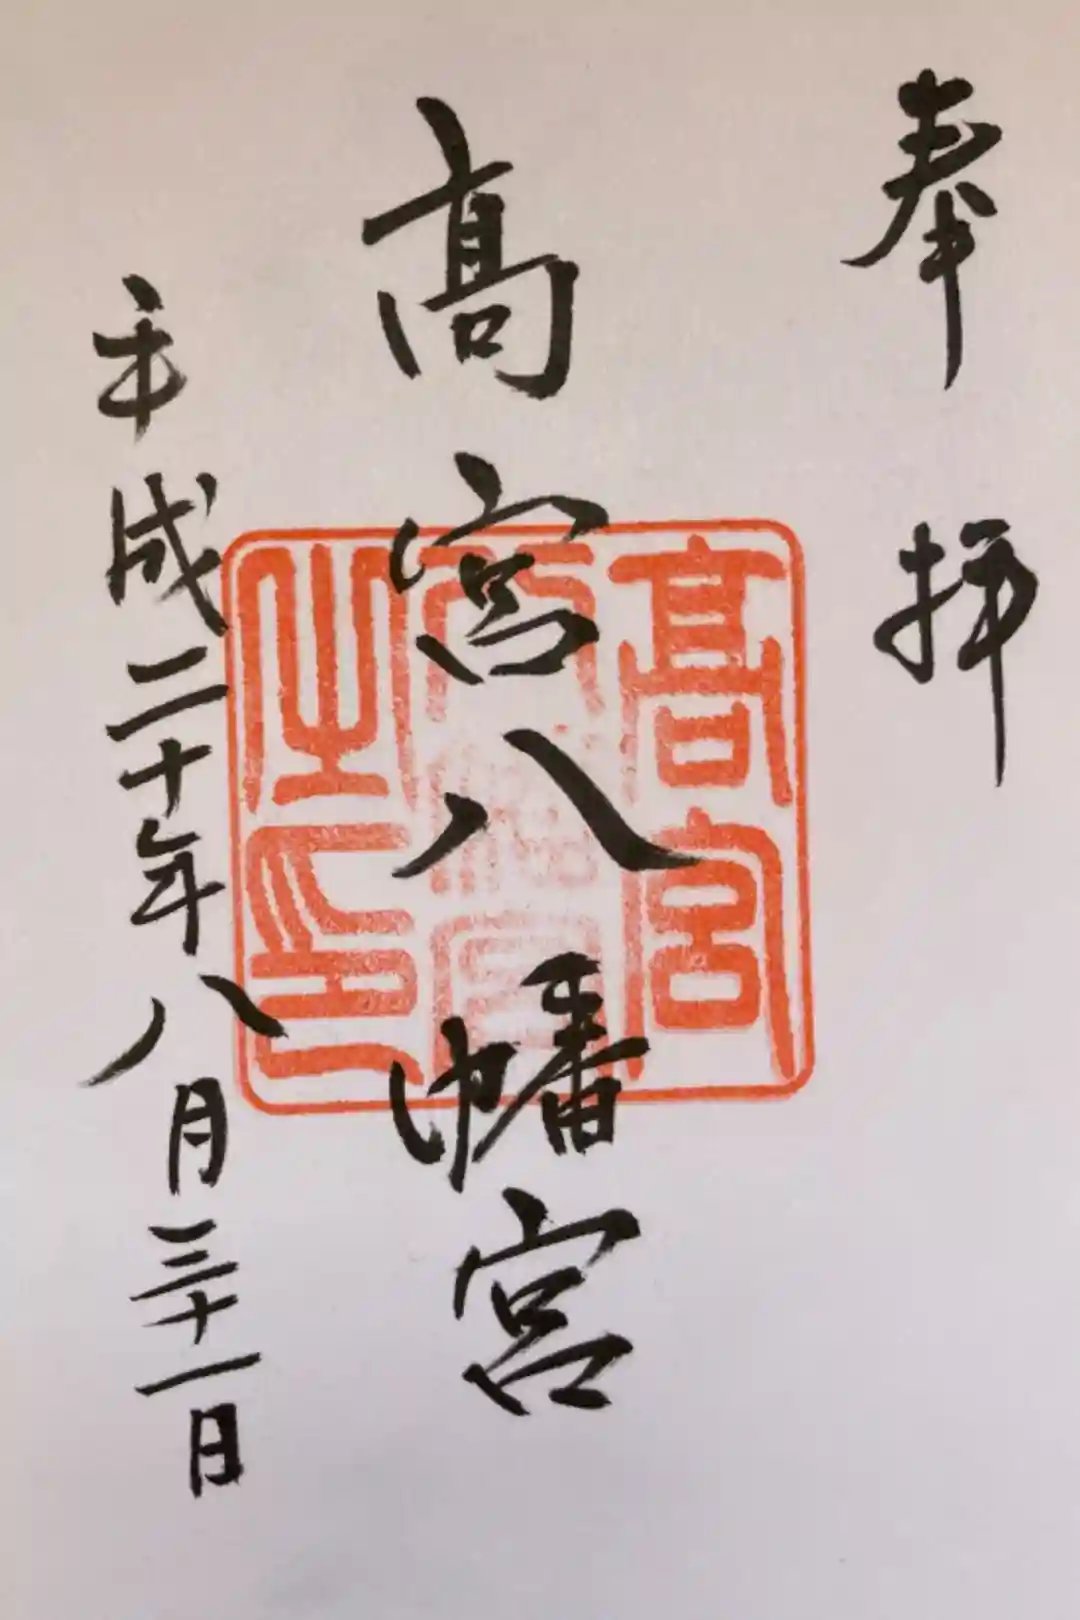 奉拝
髙宮八幡宮
髙宮八幡宮之印
平成二十年八月三十一日